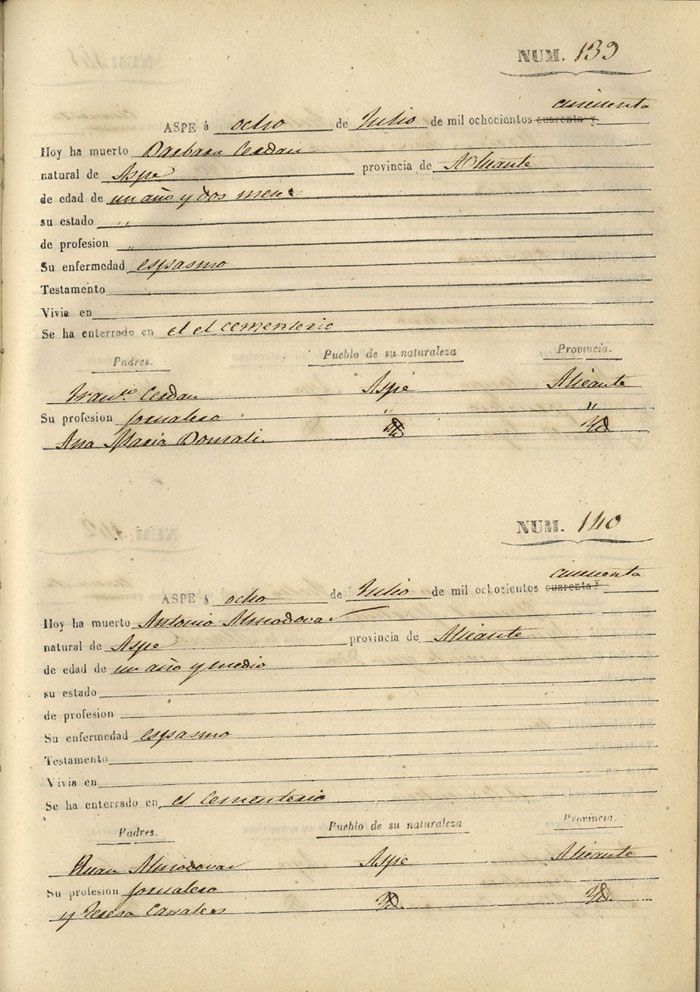 NUM. 139
cincuenta
ASPE á ocho de Julio de mil ochocientos cuarenta y
Hoy ha muerto Barbara Cerdan
natural de Aspe provincia de Alicante
de edad de un año y dos mese
su estado "
de profesion "
Su enfermedad espasmo
Testamento
Vivia en
Se ha enterrado en el el cementerio
Padres. Pueblo de su naturaleza Provincia.
Cerdan Aspe Alicante
Su profesion jornalero " "
Ana Maria Yd Yd
NUM. 140
cincuenta
ASPE á ocho de Julio de mil ochocientos cuarenta y
Hoy ha muerto Antonio Almodovar
natural de Aspe provincia de Alicante
de edad de un año y medio
su estado
de profesion
Su enfermedad espasmo
Testamento
Vivia en
Se ha enterrado en el cementerio
Padres. Pueblo de su naturaleza Provincia.
Juan Almodovar Aspe Alicante
Su profesion jornalero
y Teresa Yd. Yd.